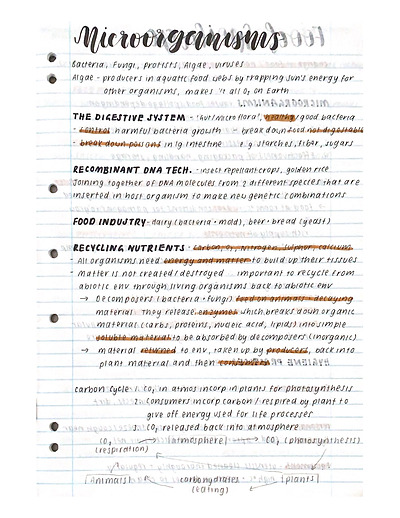 Microorganisms
Bacteria, Fungi, Protists, Algae, viruses
Algae - producers in aquatic food webs by trapping sun's energy for
other organisms, makes all O₂ on Earth
THE DIGESTIVE SYSTEM - 'Gut/Microflora', healthy/good bacteria
- control harmful bacteria growth - break down food not digestable
- break down poisons in lg intestine e.g. starches, fiber, sugars
RECOMBINANT DNA TECH. - insect repellant crops, golden rice
Joining together of DNA molecules from 2 different species that are
inserted in host organism to make new genetic combinations
FOOD INDUSTRY - dairy (bacteria + mold), beer + bread (yeast)
RECYCLING NUTRIENTS - Carbon, O₂, Nitrogen, Sulphur, calcium
- All organisms need energy and matter to build up their tissues
- Matter is not created/destroyed important to recycle from
abiotic env through living organisms back to abiotic env
→ Decomposers (bacteria + fungi) feed on animals + decaying
material. They release enzymes which breaks down organic
material (carbs, proteins, nucleic acid, lipids) into simple
soluble material to be absorbed by decomposers (inorganic)
→ material returned to env, taken up by producers, back into
plant material and then consumers
carbon cycle 1. CO₂ in atmos incorp in plants for photosynthesis
2. Consumers incorp carbon/respired by plant to
give off energy used for life processes
3. CO₂ released back into atmosphere
CO₂ → [atmosphere] → CO₂ (photosynthesis)
(respiration)
[Animals] carbohydrates [plants]
(eating)